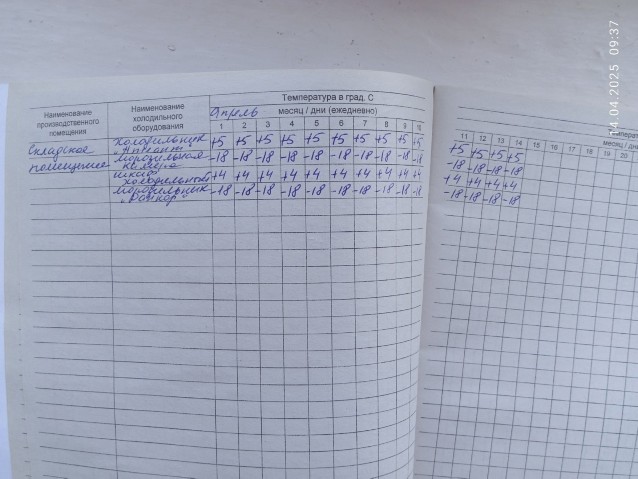 04.2025 09:37
Наименование производственного помещения
Наименование холодильного оборудования
Температура в град. С
Апрель месяц / дни (ежедневно)
1 2 3 4 5 6 7 8 9 10
11 12 13 14 15 16 17 18 19 20
месяц / дни
Складское помещение
Холодильник "Атлант" +5 +5 +5 +5 +5 +5 +5 +5 +5 +5 +5 +5 +5 +5
морозильная камера -18 -18 -18 -18 -18 -18 -18 -18 -18 -18 -18 -18 -18 -18
шкаф холодильный +4 +4 +4 +4 +4 +4 +4 +4 +4 +4 +4 +4 +4 +4
морозильник -18 -18 -18 -18 -18 -18 -18 -18 -18 -18 -18 -18 -18 -18